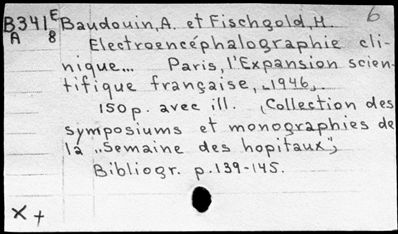 B341E Baudouin, A. et Fischgold, H. 6
A 8 Electroencéphalographie cli-
nique... Paris, l'Expansion scien-
tifique française, 1946.
150 p. avec ill. (Collection des
symposiums et monographies de
la "Semaine des hopitaux")
Bibliogr. p.139-145.
x +